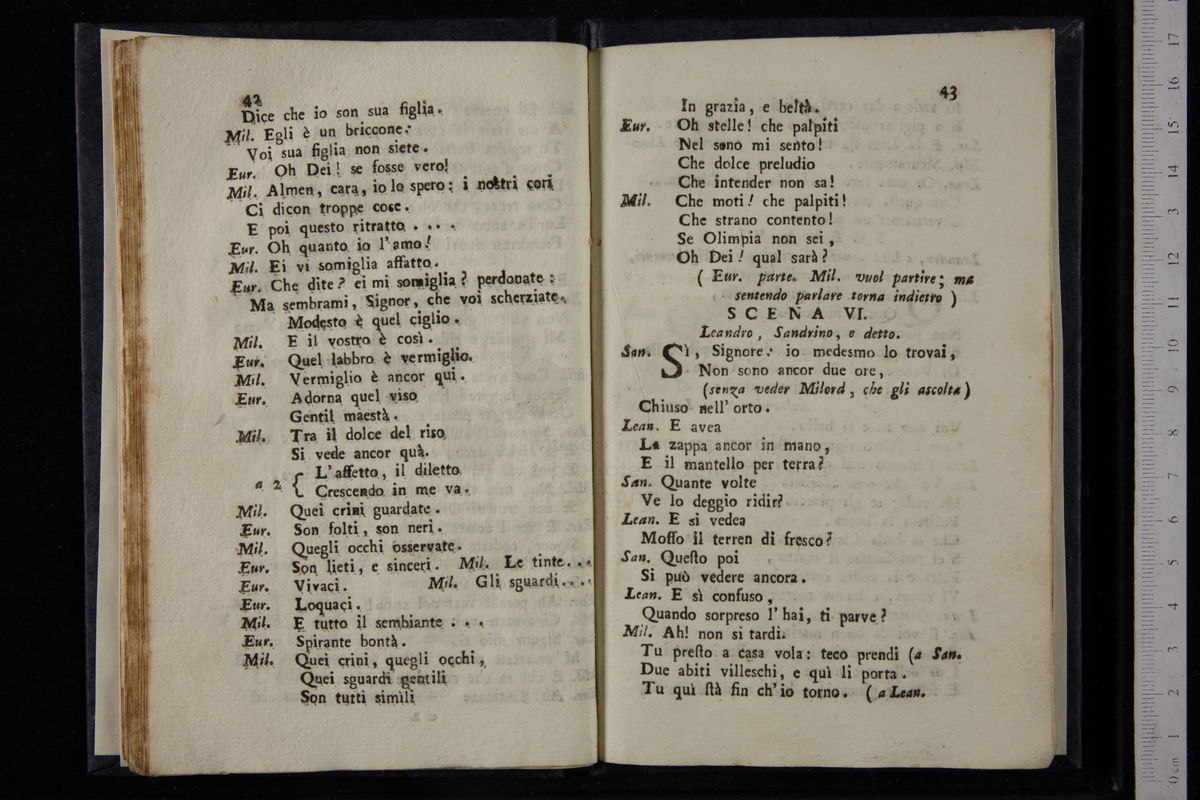 42
Dice che io son sua figlia.
Mil. Egli è un briccone:
Voi sua figlia non siete.
Eur. Oh Dei! se fosse vero!
Mil. Almen, cara, io lo spero: i nostri cori
Ci dicon troppe cose.
E poi questo ritratto. . . .
Eur. Oh quanto io l'amo!
Mil. Ei vi somiglia affatto.
Eur. Che dite? ei mi somiglia? perdonate:
Ma sembrami, Signor, che voi scherziate.
Modesto è quel ciglio.
Mil. E il vostro è così.
Eur. Quel labbro è vermiglio.
Mil. Vermiglio è ancor qui.
Eur. Adorna quel viso
Gentil maestà.
Mil. Tra il dolce del riso
Si vede ancor quà.
a 2 { L'affetto, il diletto
Crescendo in me va.
Mil. Quei crini guardate.
Eur. Son folti, son neri.
Mil. Quegli occhi osservate.
Eur. Son lieti, e sinceri. Mil. Le tinte. . .
Eur. Vivaci. Mil. Gli sguardi. . . .
Eur. Loquaci.
Mil. E tutto il sembiante . . .
Eur. Spirante bontà.
Mil. Quei crini, quegli occhi,
Quei sguardi gentili
Son tutti simili
43
In grazia, e beltà.
Eur. Oh stelle! che palpiti
Nel seno mi sento!
Che dolce preludio
Che intender non sa!
Mil. Che moti! che palpiti!
Che strano contento!
Se Olimpia non sei,
Oh Dei! qual sarà?
( Eur. parte. Mil. vuol partire; ma
sentendo parlare torna indietro )
SCENA VI.
Leandro, Sandrino, e detto.
San. Sì, Signore: io medesmo lo trovai,
Non sono ancor due ore,
(senza veder Milord, che gli ascolta)
Chiuso nell'orto.
Lean. E avea
La zappa ancor in mano,
E il mantello per terra?
San. Quante volte
Ve lo deggio ridir?
Lean. E si vedea
Moſſo il terren di fresco?
San. Queſto poi
Si può vedere ancora.
Lean. E sì confuso,
Quando sorpreso l'hai, ti parve?
Mil. Ah! non si tardi.
Tu preſto a casa vola: teco prendi (a San.
Due abiti villeschi, e quì li porta.
Tu quì ſtà fin ch'io torno. ( a Lean.